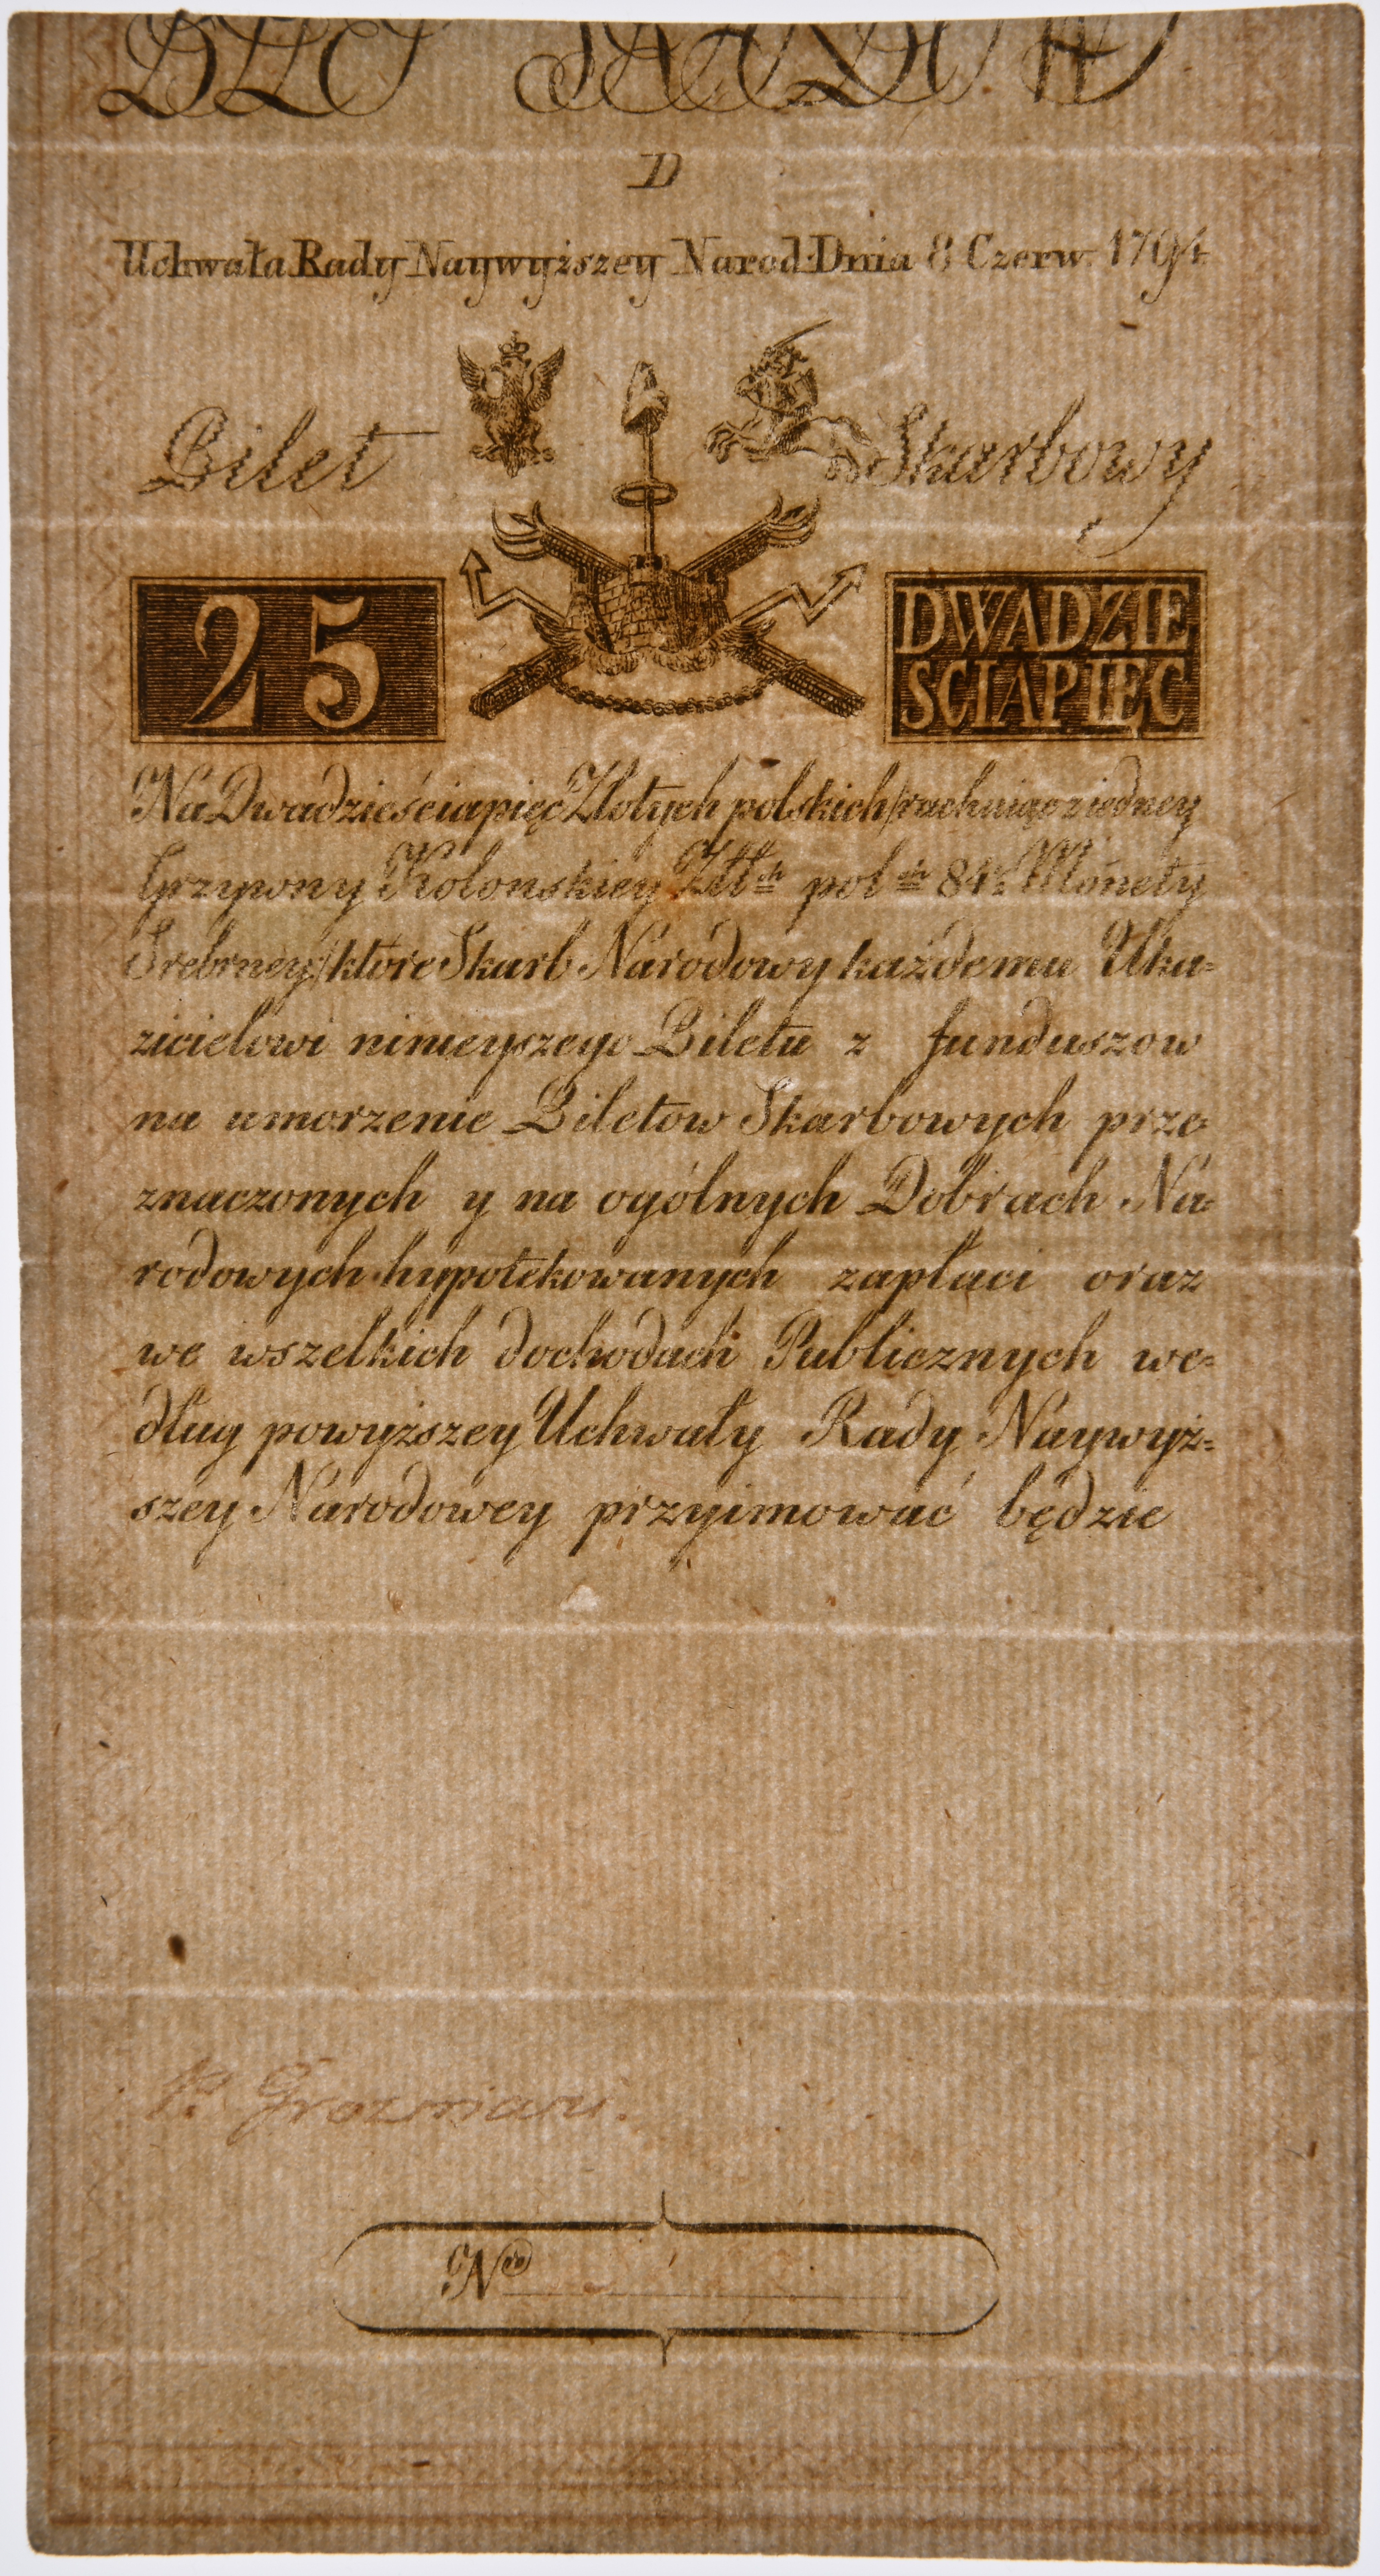 D
Uchwała Rady Naywyższey Narod: Dnia 8 Czerw. 1794.
Bilet Skarbowy
25 DWADZIE
SCIAPIĘC
Na Dwadzieściapięć Złotych polskich/rachuiąc z iedney
Grzywny Kolonskiey Złł.ch pol.ch 84½ Monety
Srebrney/które Skarb Narodowy każdemu Uka=
zicielowi ninieyszego Biletu z funduszow
na umorzenie Biletow Skarbowych prze=
znaczonych y na ogólnych Dobrach Na=
rodowych hypotekowanych zapłaci oraz
we wszelkich dochodach Publicznych we=
dług powyższey Uchwały Rady Naywyż=
szey Narodowey przyimować będzie
Nro